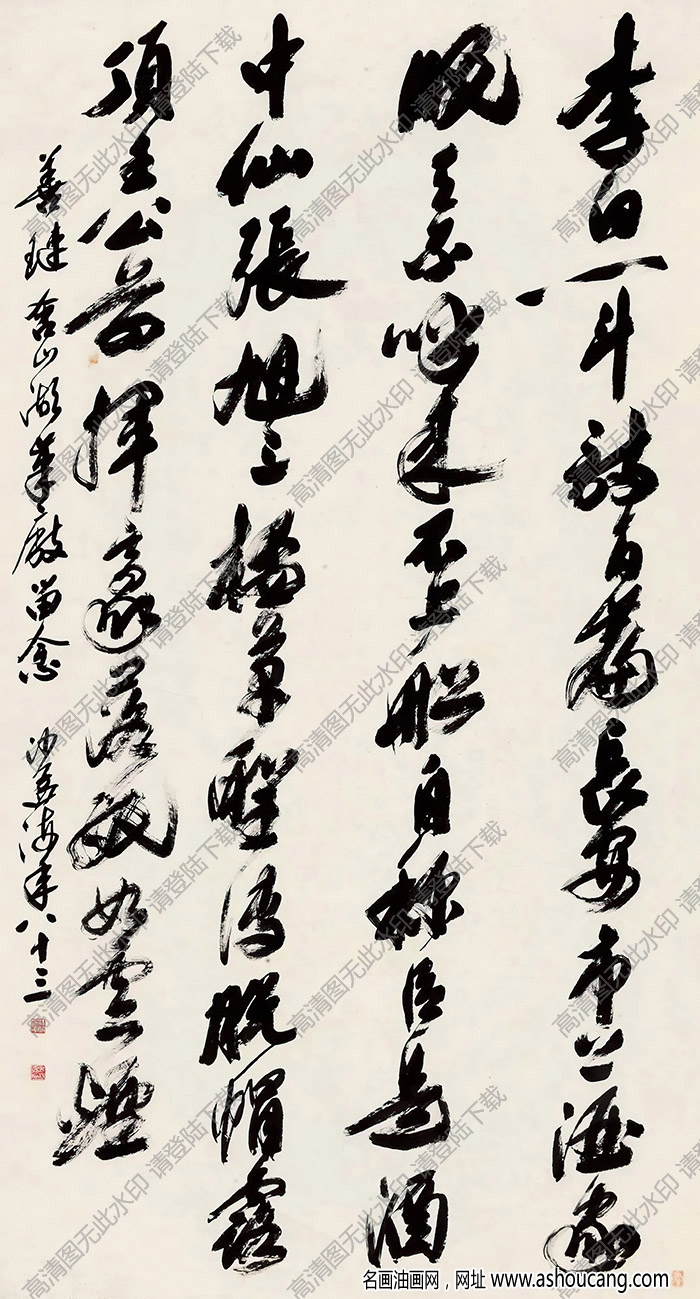 李白一斗詩百篇長安市上酒家
眠天子呼來不上船自稱臣是酒
中仙張旭三桮草聖傳脫帽露
頂王公前揮豪落紙如雲煙
善璉含山湖筆廠留念 沙孟海年八十三
高清图无此水印 请登陆下载
名画油画网，网址 www.ashoucang.com